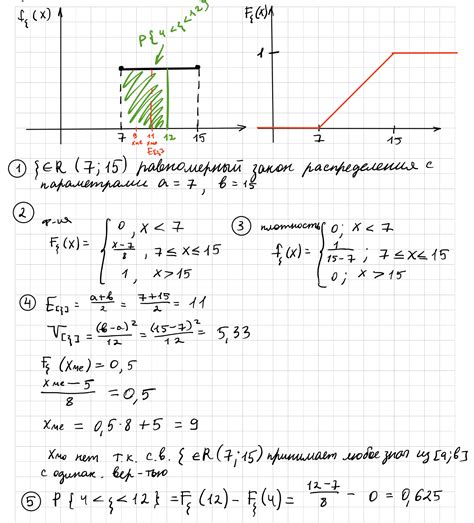 f_ξ(x)
F_ξ(x)
P{4<ξ<12}
1
7 9 11 12 15
x_me x_mo
E[ξ]
7 15
① ξ∈R (7;15) равномерный закон распределения с
параметрами a=7, b=15
② ф-ия
F_ξ(x)= { 0, x<7
(x-7)/8, 7≤x≤15
1, x>15
③ плотность
f_ξ(x)= { 0; x<7
1/(15-7); 7≤x≤15
0; x>15
④ E[ξ]= (a+b)/2 = (7+15)/2 = 11
V[ξ]= (b-a)²/12 = (15-7)²/12 = 5,33
F_ξ(x_me)=0,5
(x_me-5)/8 =0,5
x_me = 0,5·8+5 = 9
x_mo нет т.к. с.в. ξ∈R(7;15) принимает любое знач из [a;b]
с одинак. вер-тью
⑤ P{4<ξ<12} =F_ξ(12)-F_ξ(4)= (12-7)/8 - 0 = 0,625